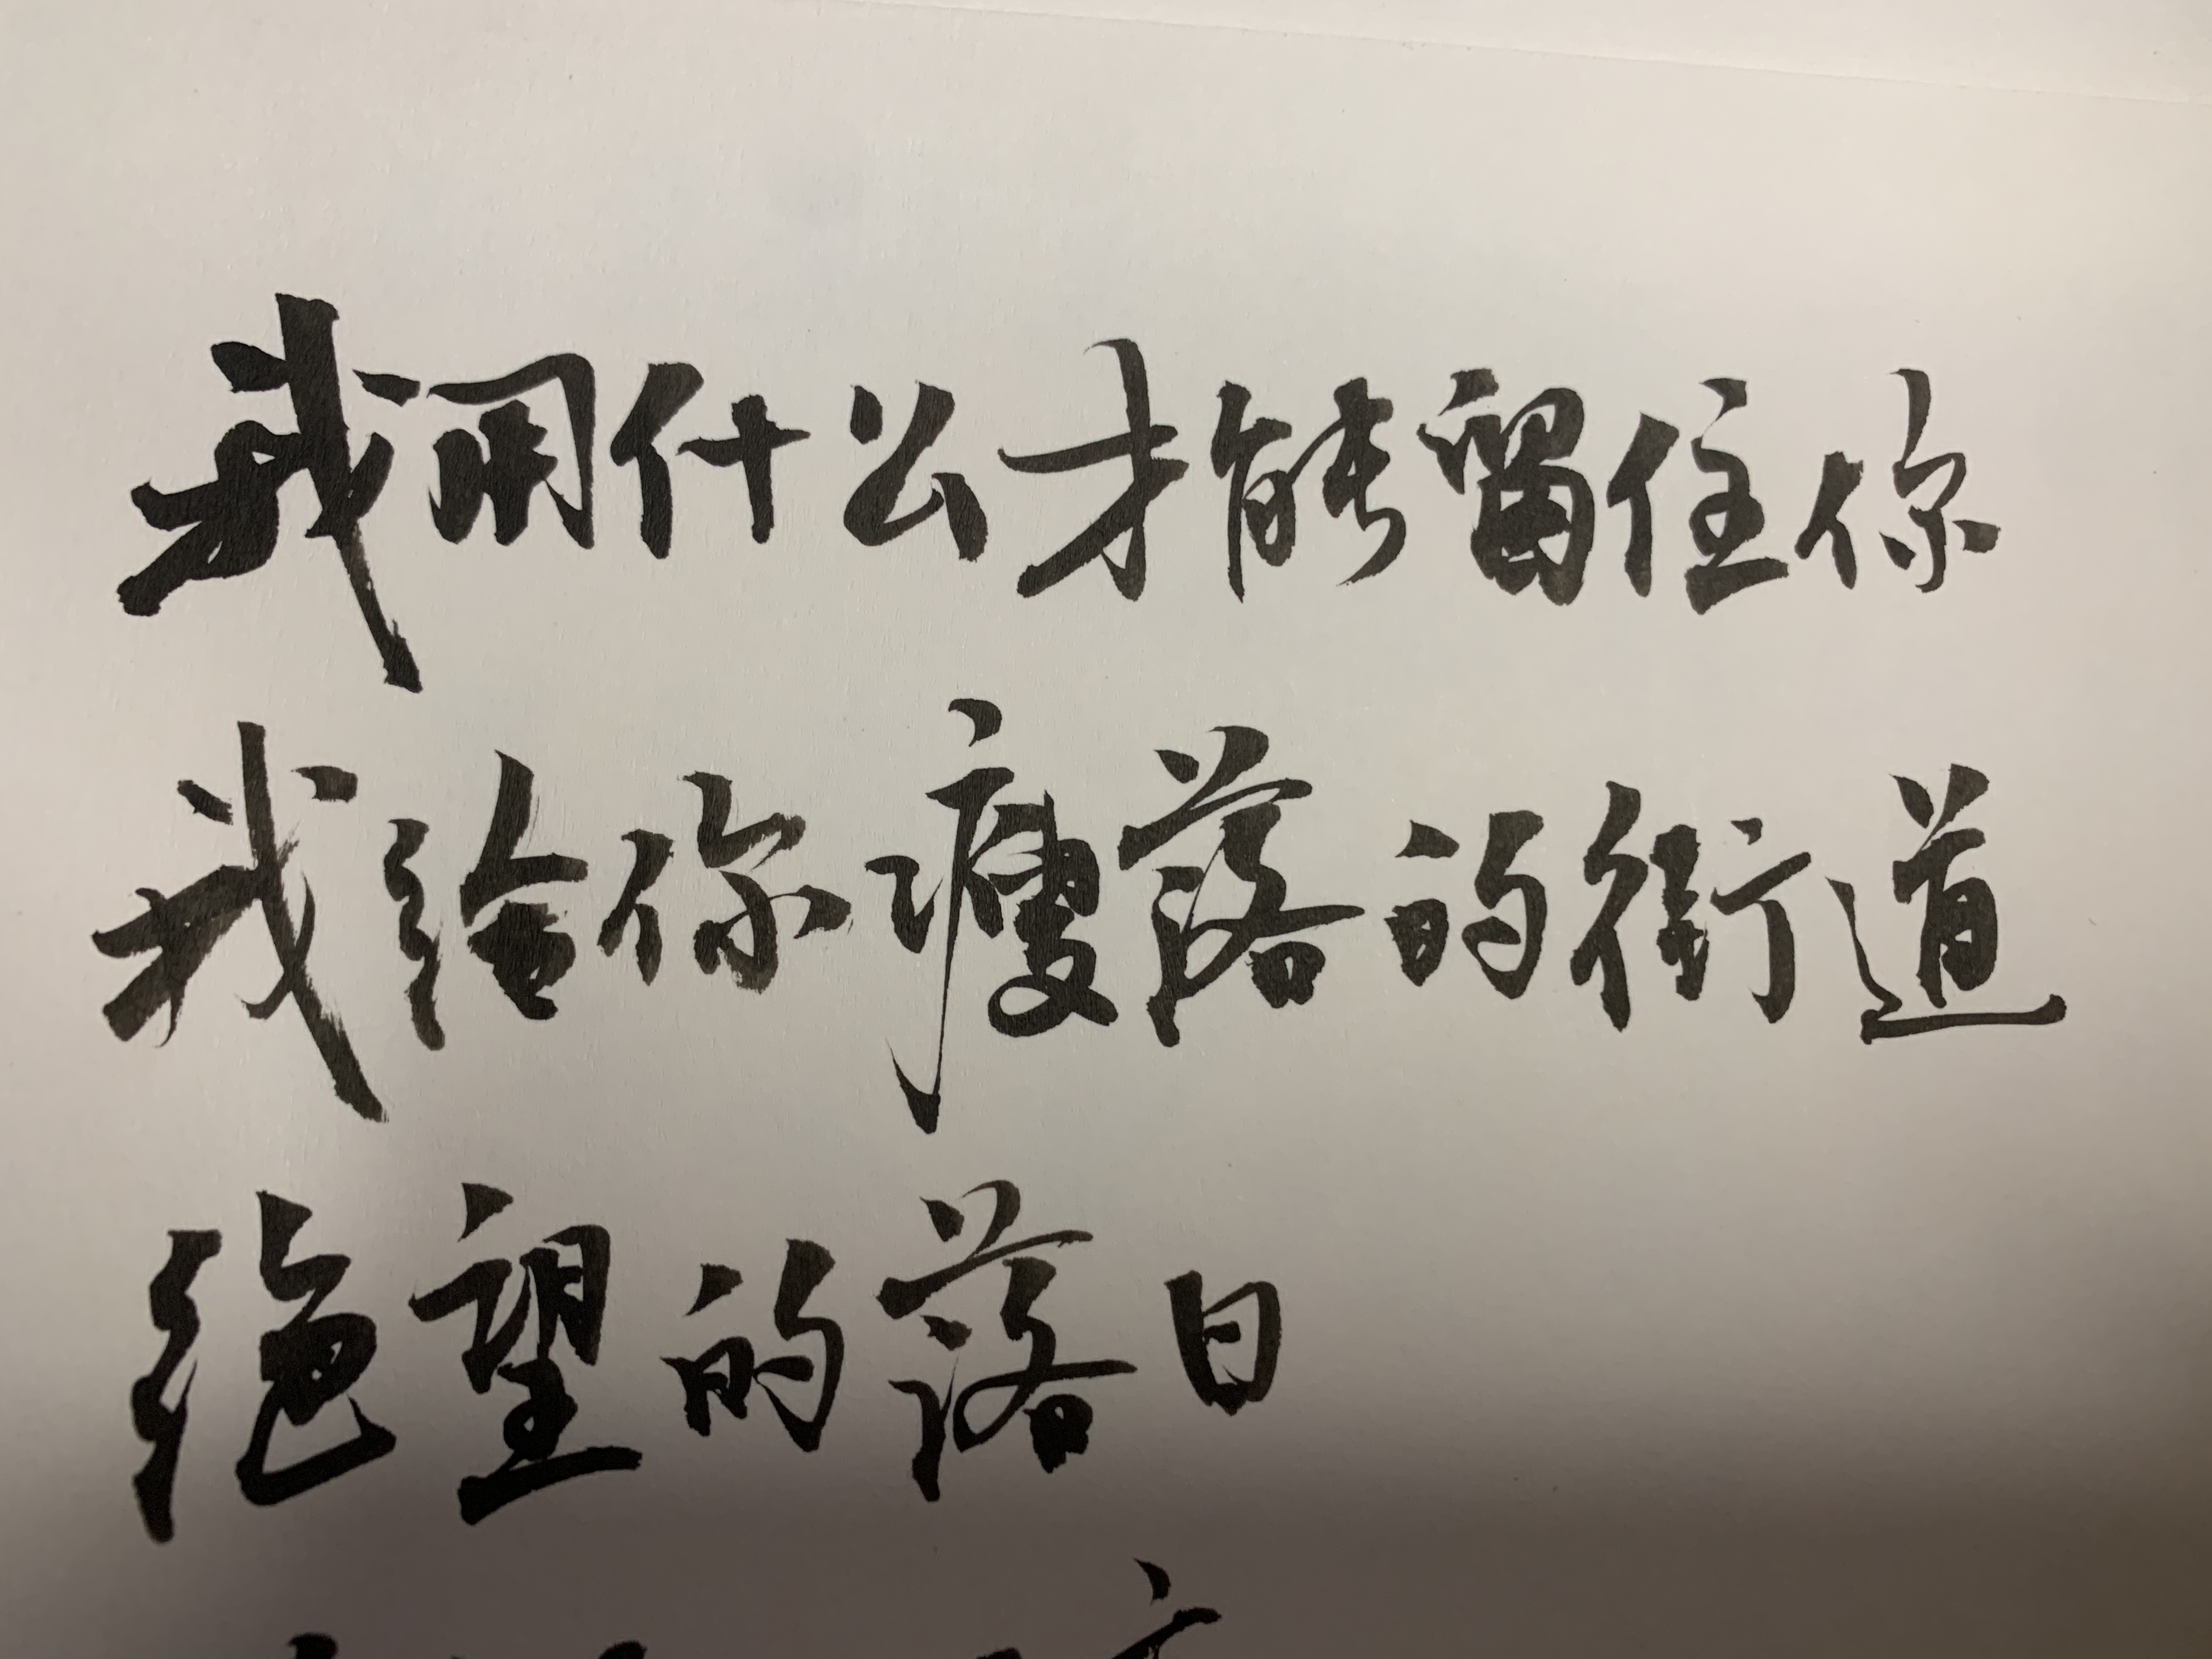 我用什么才能留住你
我给你瘦落的街道
绝望的落日